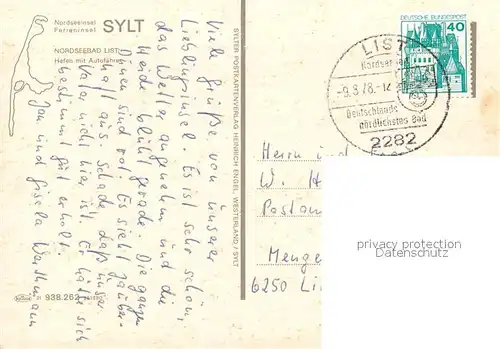 Nordseeinsel
Ferieninsel
SYLT
NORDSEEBAD LIST
Hafen mit Autofähre
Viele Grüße von unserer
Lieblingsinsel. Es ist sehr schön,
das Wetter angenehm und die
Heide blüht gerade. Die ganzen
Dünen sind rot. Es sieht zauber-
haft aus. Schade, daß unser
Vater nicht hier ist. Er hätte sich
bestimmt gut erholt.
und Gisela
938.262
SYLTER POSTKARTENVERLAG HEINRICH ENGEL, WESTERLAND / SYLT
DEUTSCHE BUNDESPOST
40
LIST
Nordseebad
-9.8.78.-12
Deutschlands
nördlichstes Bad
2282
Herrn und
W. H
Postam
Menge
6250 Li
privacy protection
Datenschutz